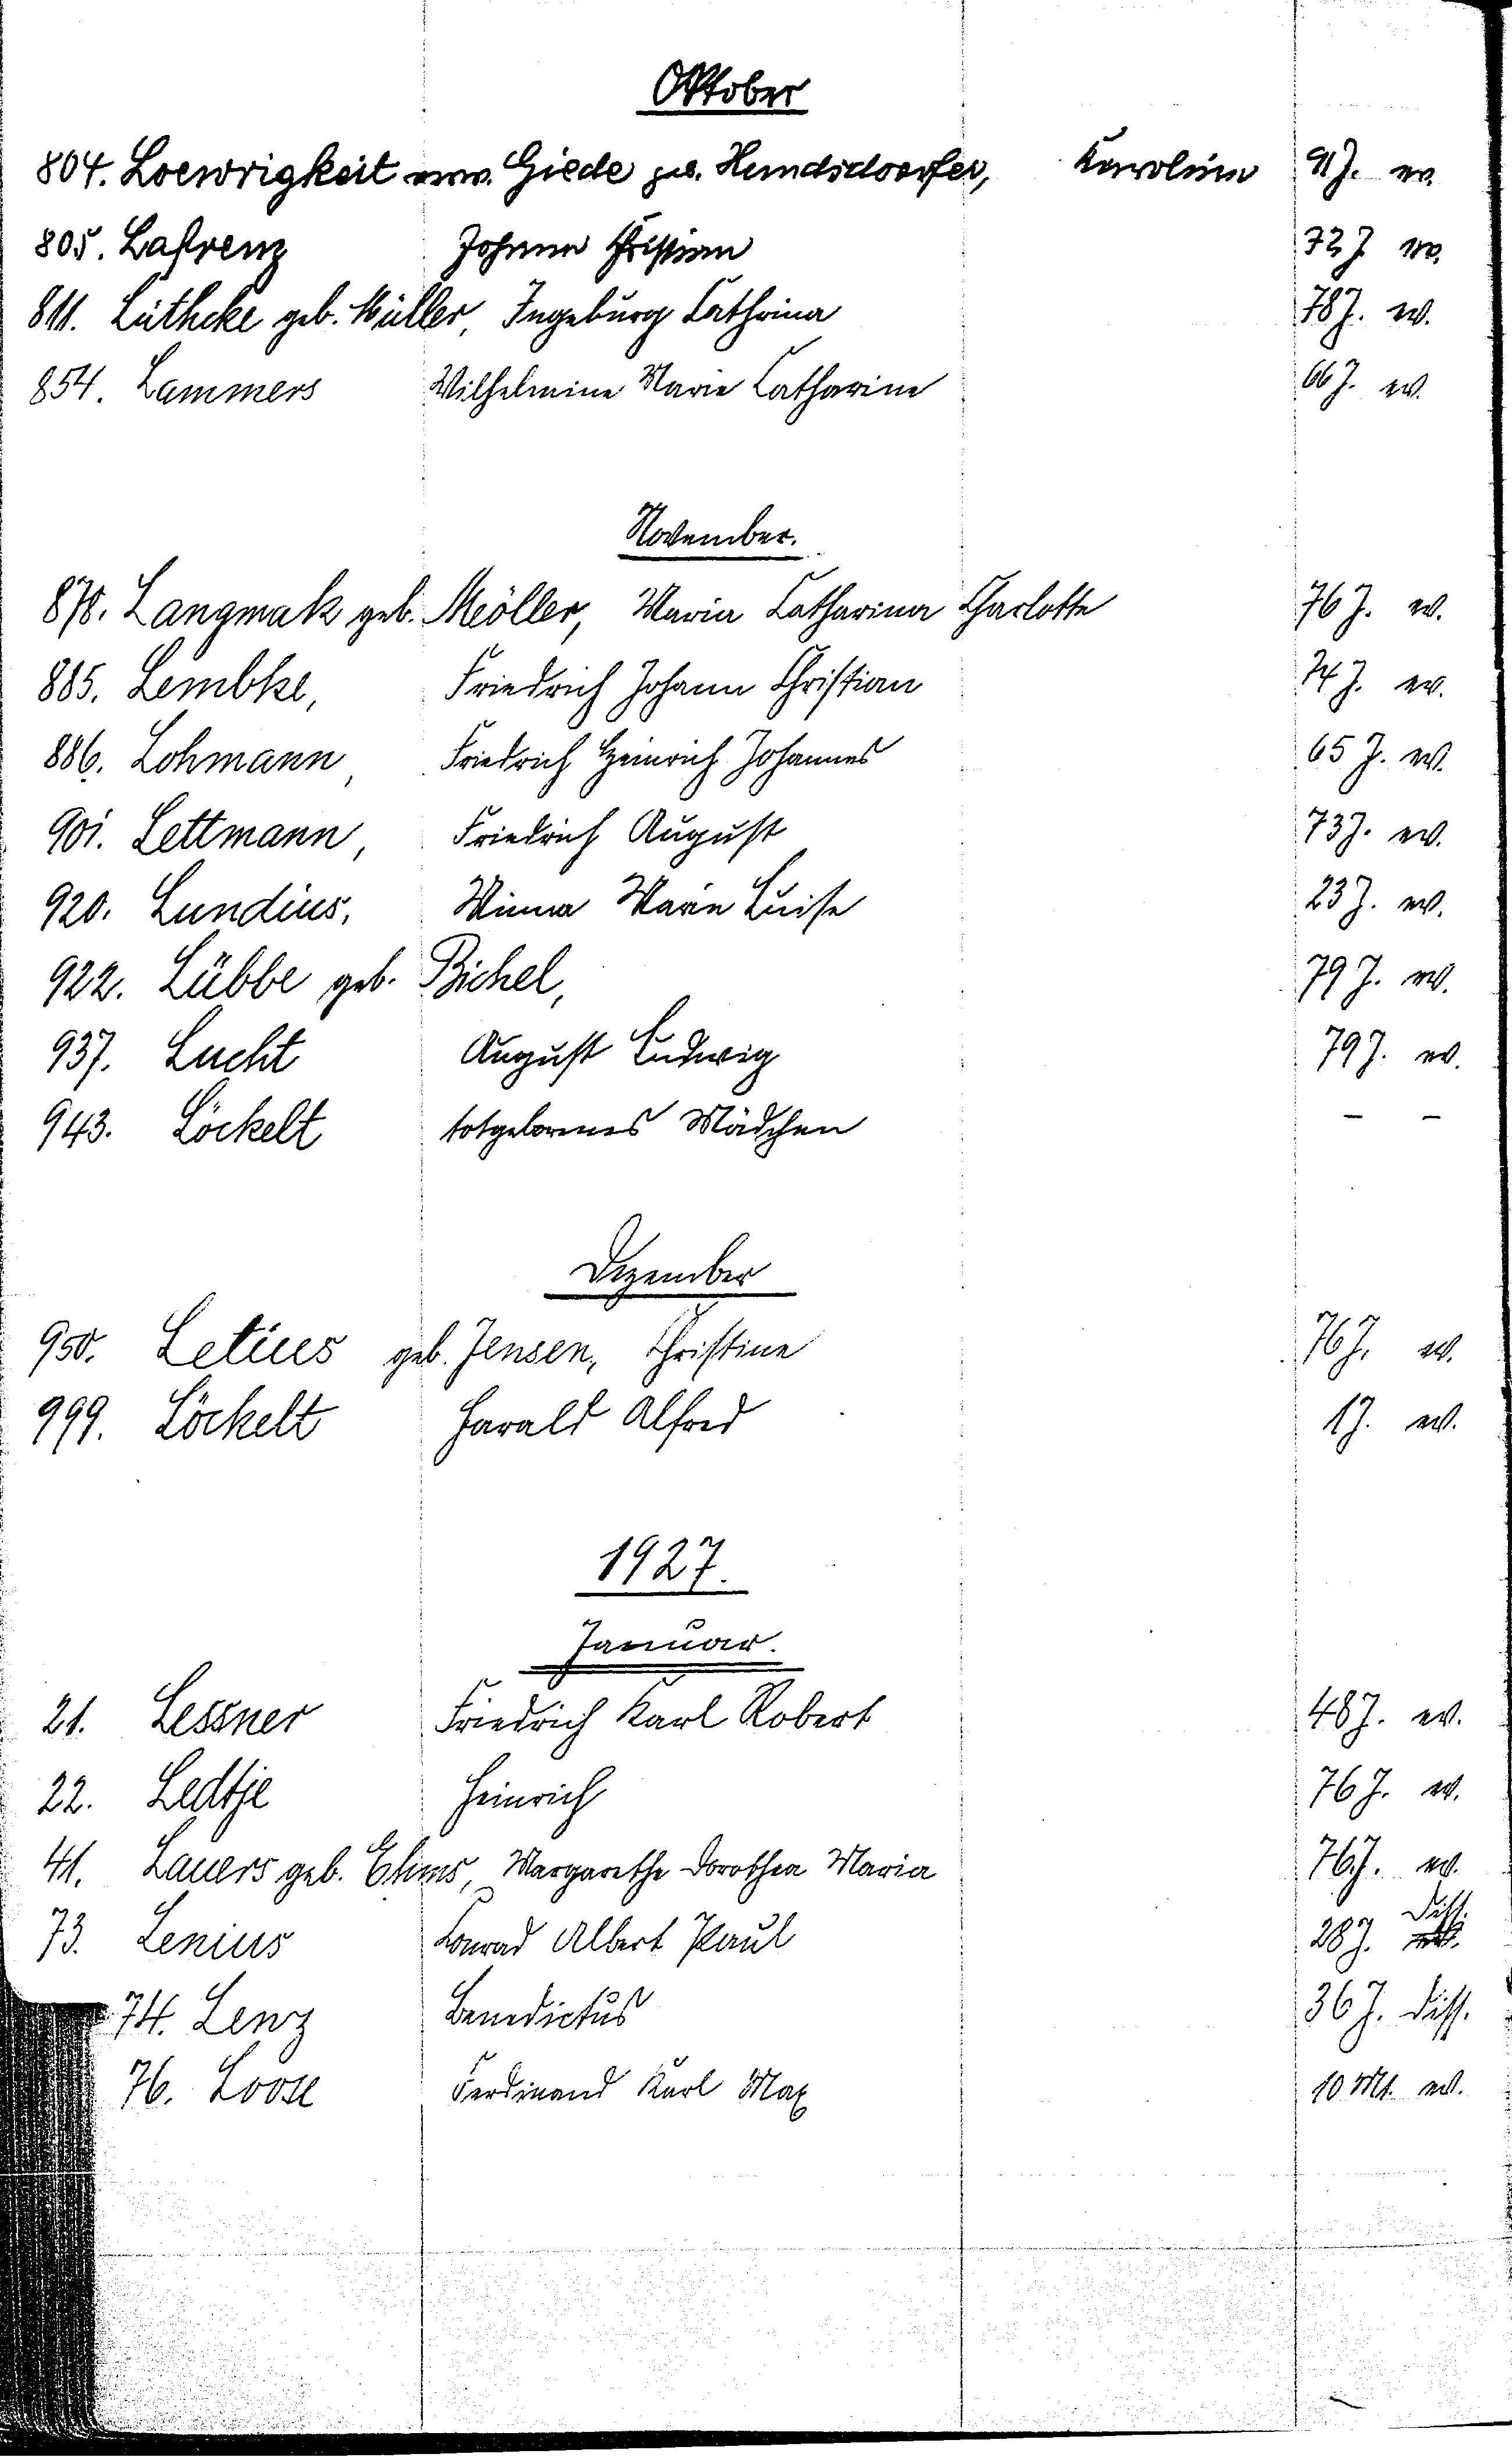 Oktober
804. Loewrigkeit verw. Giede geb. Hundsdoerfer, Karoline 91 J. ev.
805. Lafrenz Johann Christian 72 J. ev.
811. Lüthcke geb. Müller, Ingeburg Cathrina 78 J. ev.
854. Lammers Wilhelmine Marie Catharine 66 J. ev.
November.
878. Langmak geb. Möller, Maria Catharina Charlotte 76 J. ev.
885. Lembke, Friedrich Johann Christian 74 J. ev.
886. Lohmann, Friedrich Heinrich Johannes 65 J. ev.
901. Lettmann, Friedrich August 73 J. ev.
920. Lundius, Minna Marie Luise 23 J. ev.
922. Lübbe geb. Bichel, 79 J. ev.
937. Lucht August Ludwig 79 J. ev.
943. Löckelt totgeborenes Mädchen – –
Dezember
950. Letius geb. Jensen, Christine 76 J. ev.
999. Löckelt Harald Alfred 1 J. ev.
1927.
Januar.
21. Lessner Friedrich Karl Robert 48 J. ev.
22. Ledtje Heinrich 76 J. ev.
41. Lauers geb. Ehms, Margarethe Dorothea Maria 76 J. ev.
73. Lenius Conrad Albert Paul 28 J. diss.
74. Lenz Benedictus 36 J. diss.
76. Loose Ferdinand Karl Max 10 Mt. ev.